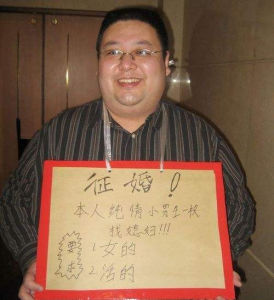 征婚!
本人纯情小男生一枚
找媳妇!!!
要求
1女的
2活的